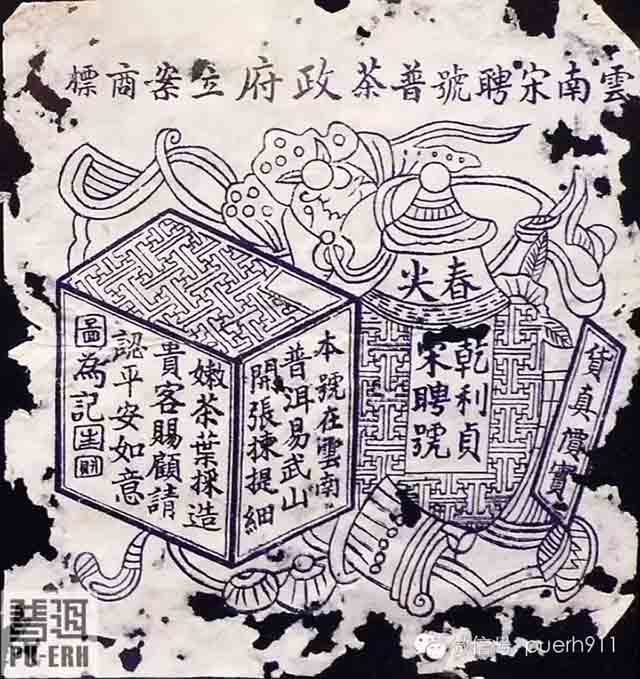 雲南宋聘號普茶政府立案商標
春尖
乾利貞
宋聘號
貨真價實
本號在雲南
普洱易武山
開張揀提細
嫩茶葉採造
貴客賜顧請
認平安如意
圖為記
普洱
PU-ERH
微信号: puerh911